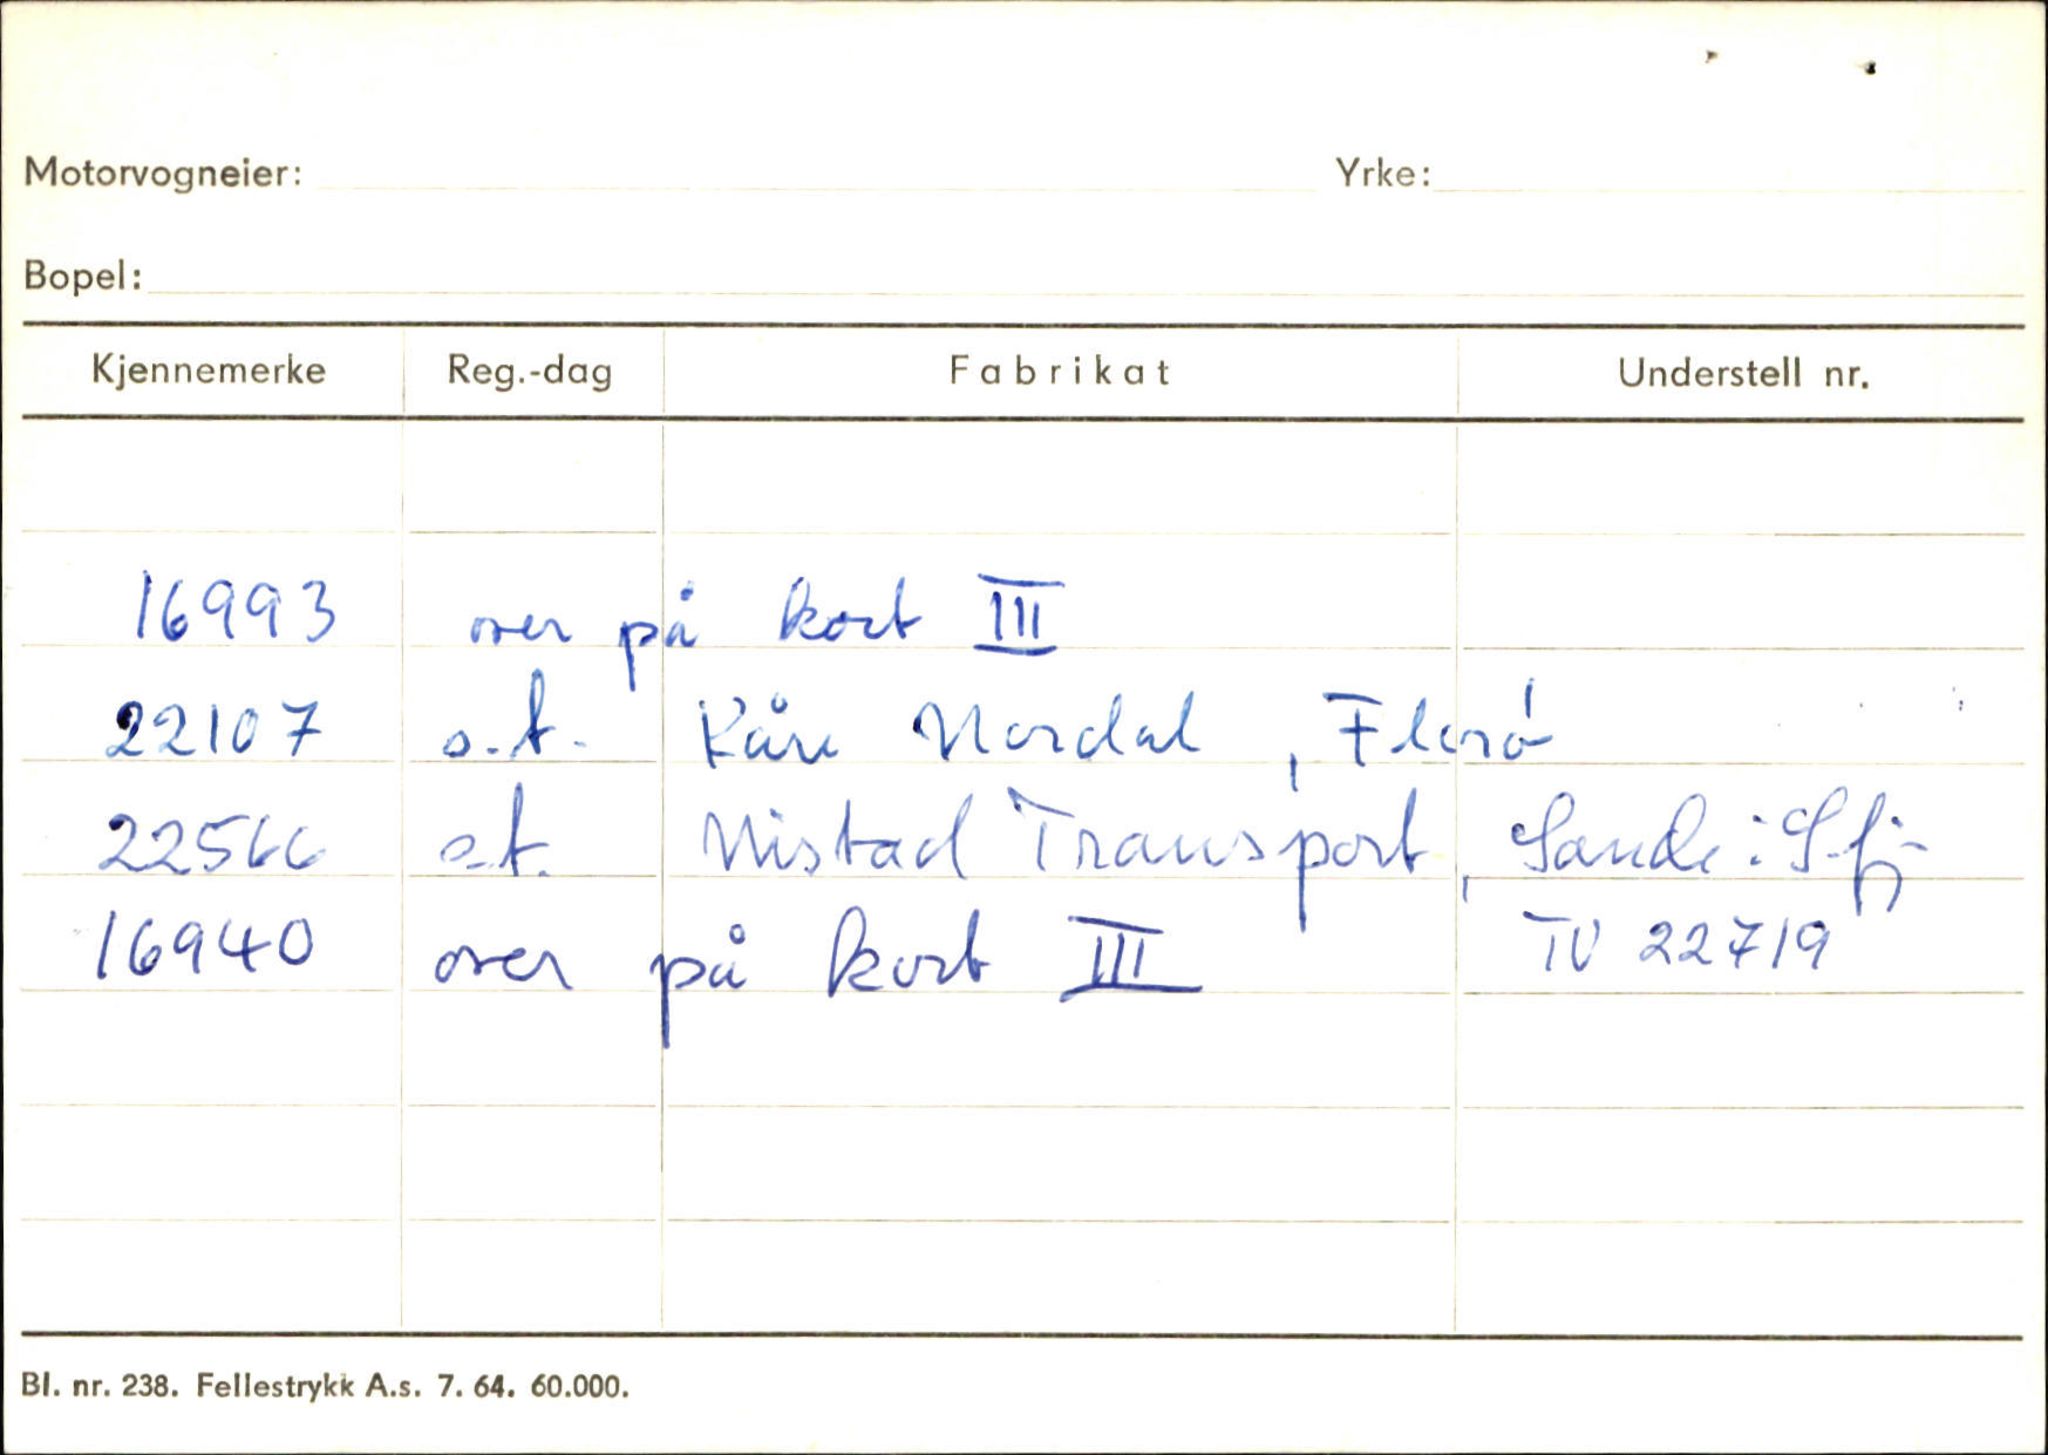 Motorvogneier: Yrke:
Bopel:
Kjennemerke Reg.-dag Fabrikat Understell nr.
16993 over på kort III
22107 o.t. Kåre Nordal, Florø
22566 o.t. Nistad Transport, Sande i S.fj.
16940 over på kort III TV 22719
Bl. nr. 238. Fellestrykk A.s. 7. 64. 60.000.